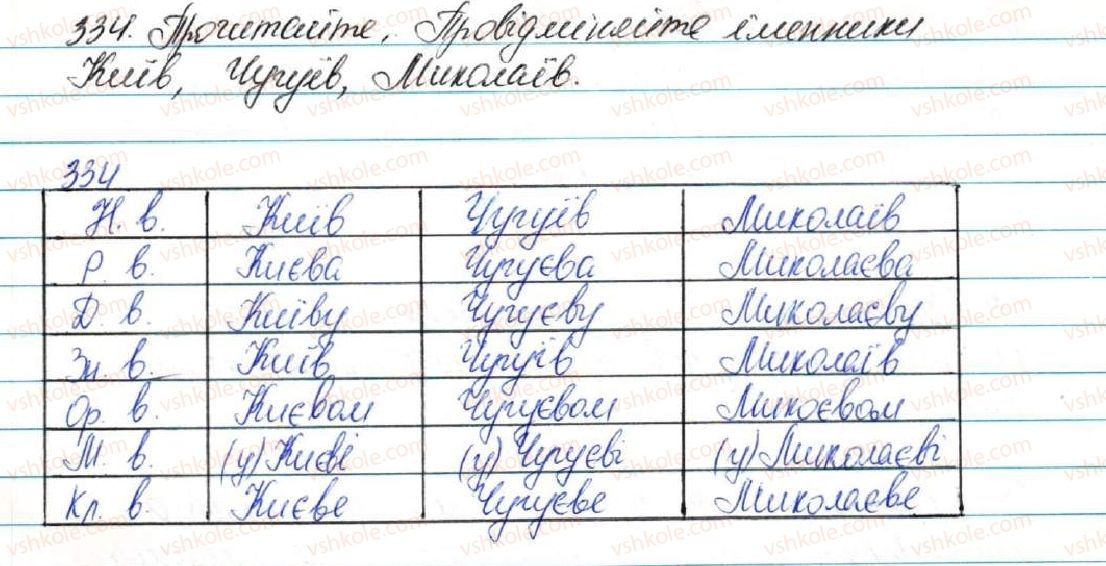 334. Прочитайте. Провідміняйте іменники
Київ, Чугуїв, Миколаїв.
334
Н. в. Київ Чугуїв Миколаїв
Р. в. Києва Чугуєва Миколаєва
Д. в. Київу Чугуєву Миколаєву
Зн. в. Київ Чугуїв Миколаїв
Ор. в. Києвом Чугуєвом Микоєвом
М. в. (у) Києві (у) Чугуєві (у) Миколаєві
Кл. в. Києве Чугуєве Миколаєве
vshkole.com